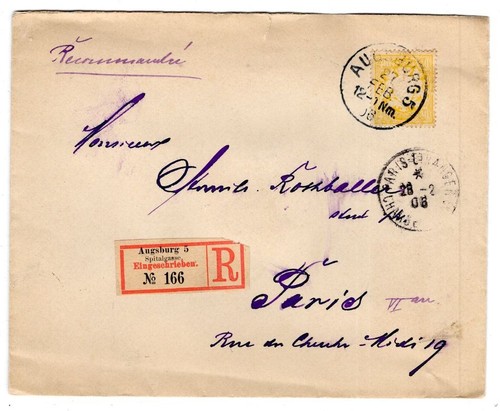 Recommandée
AUGSBURG 5
27
FEB
12-1 Nm.
06
Monsieur
PARIS-ETRANGER
28 - 2
06
Augsburg 5
Spitalgasse.
Eingeschrieben.
№ 166
R
Paris
VI arr.
Rue du Cherche-Midi 19